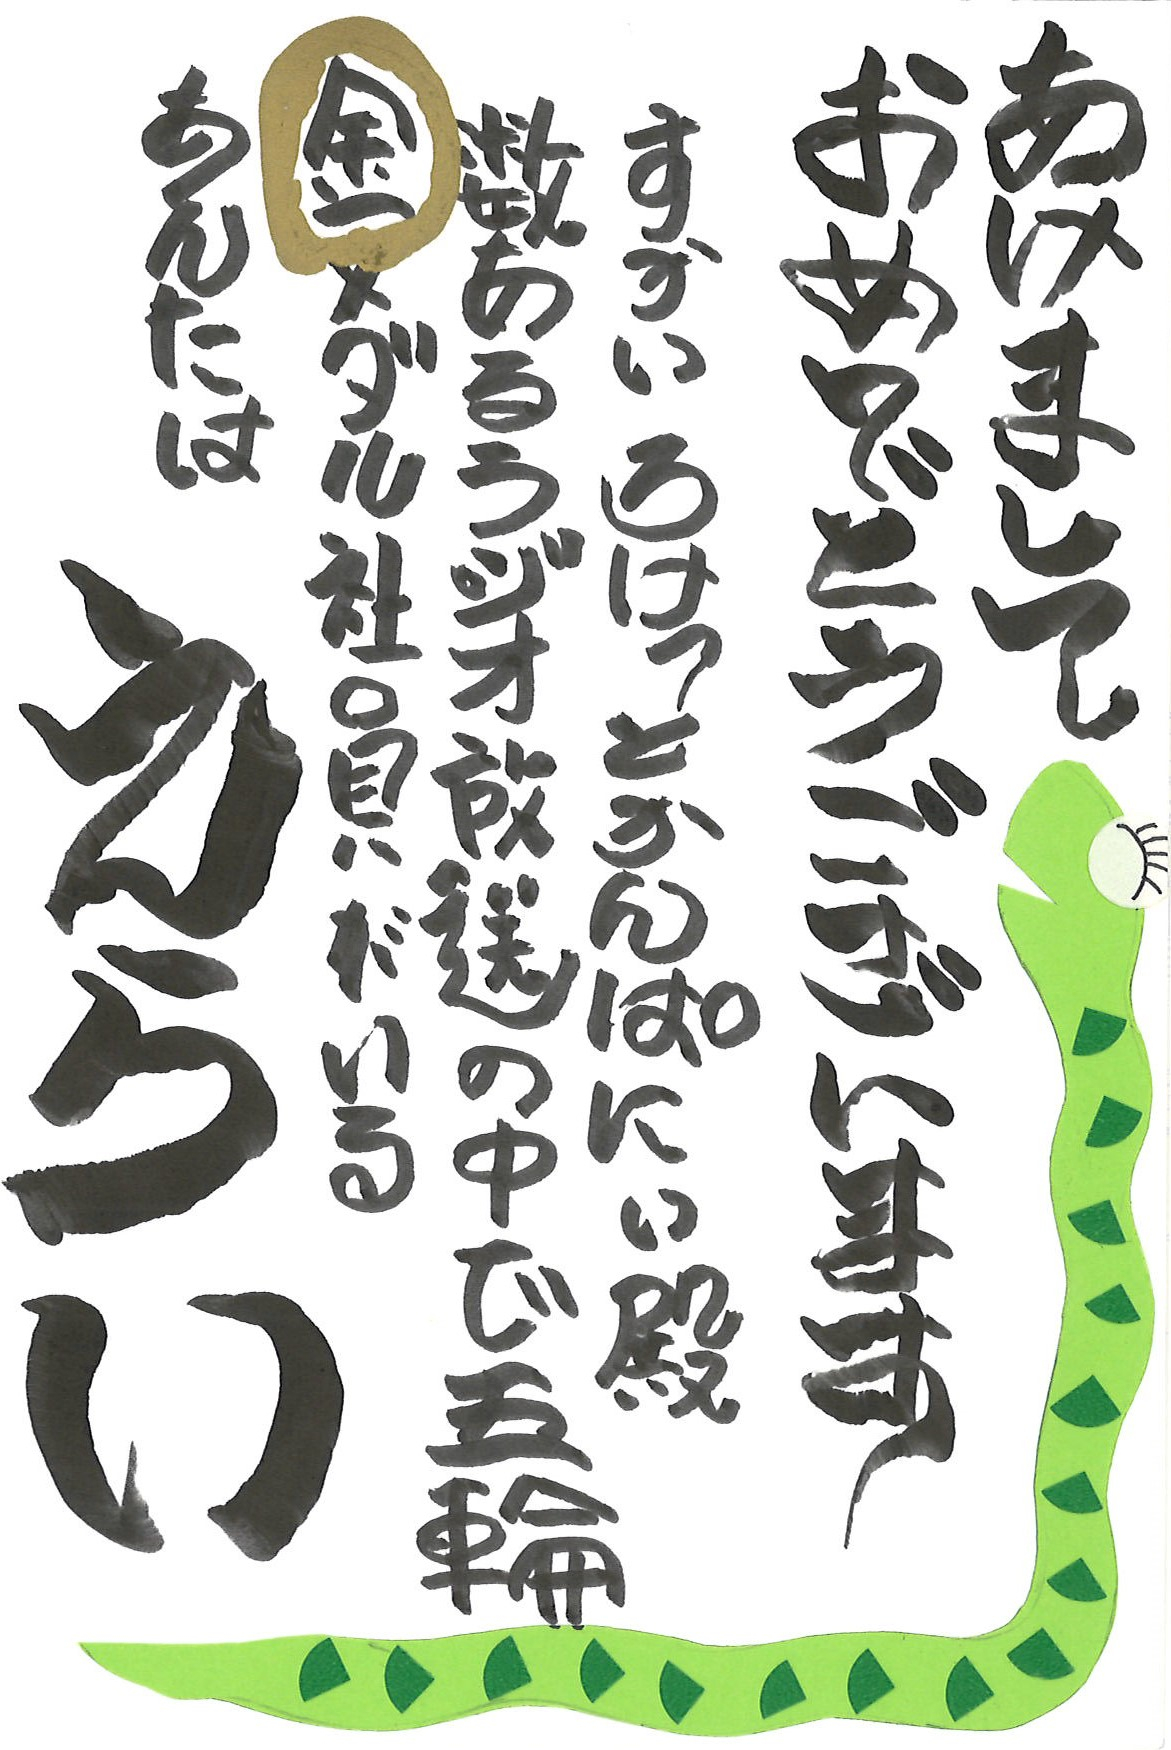 あけまして
おめでとうございます
すかいろけっとかんぱにい殿
数あるラジオ放送の中で五輪
金メダル社員だいる
あんたは
えらい